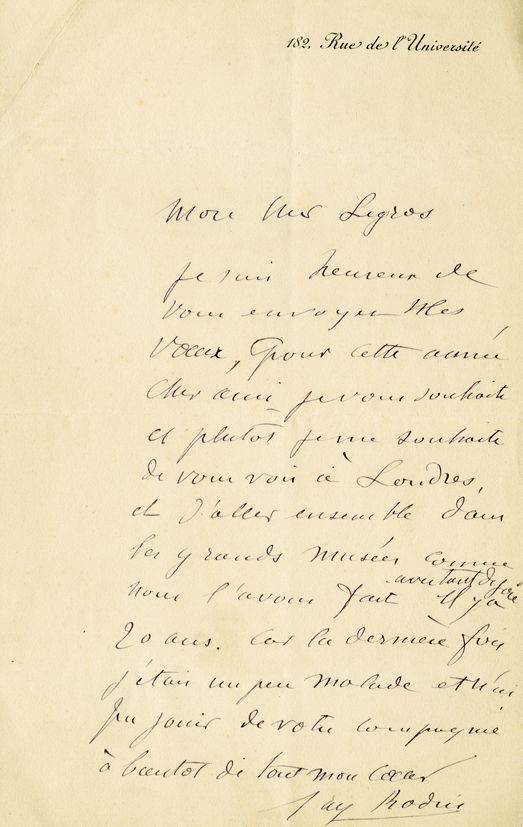 182, Rue de l'Université
Mon cher Legros
Je suis heureux de
vous envoyer mes
voeux, pour cette année
cher ami je vous souhaite
et plutôt je me souhaite
de vous voir à Londres,
et d'aller ensemble dans
les grands musées comme
avec tant de joie
nous l'avons fait Il y a
20 ans. Car la dernière fois
j'étais un peu malade et n'ai
pu jouir de votre compagnie
à bientôt de tout mon coeur
Rodin